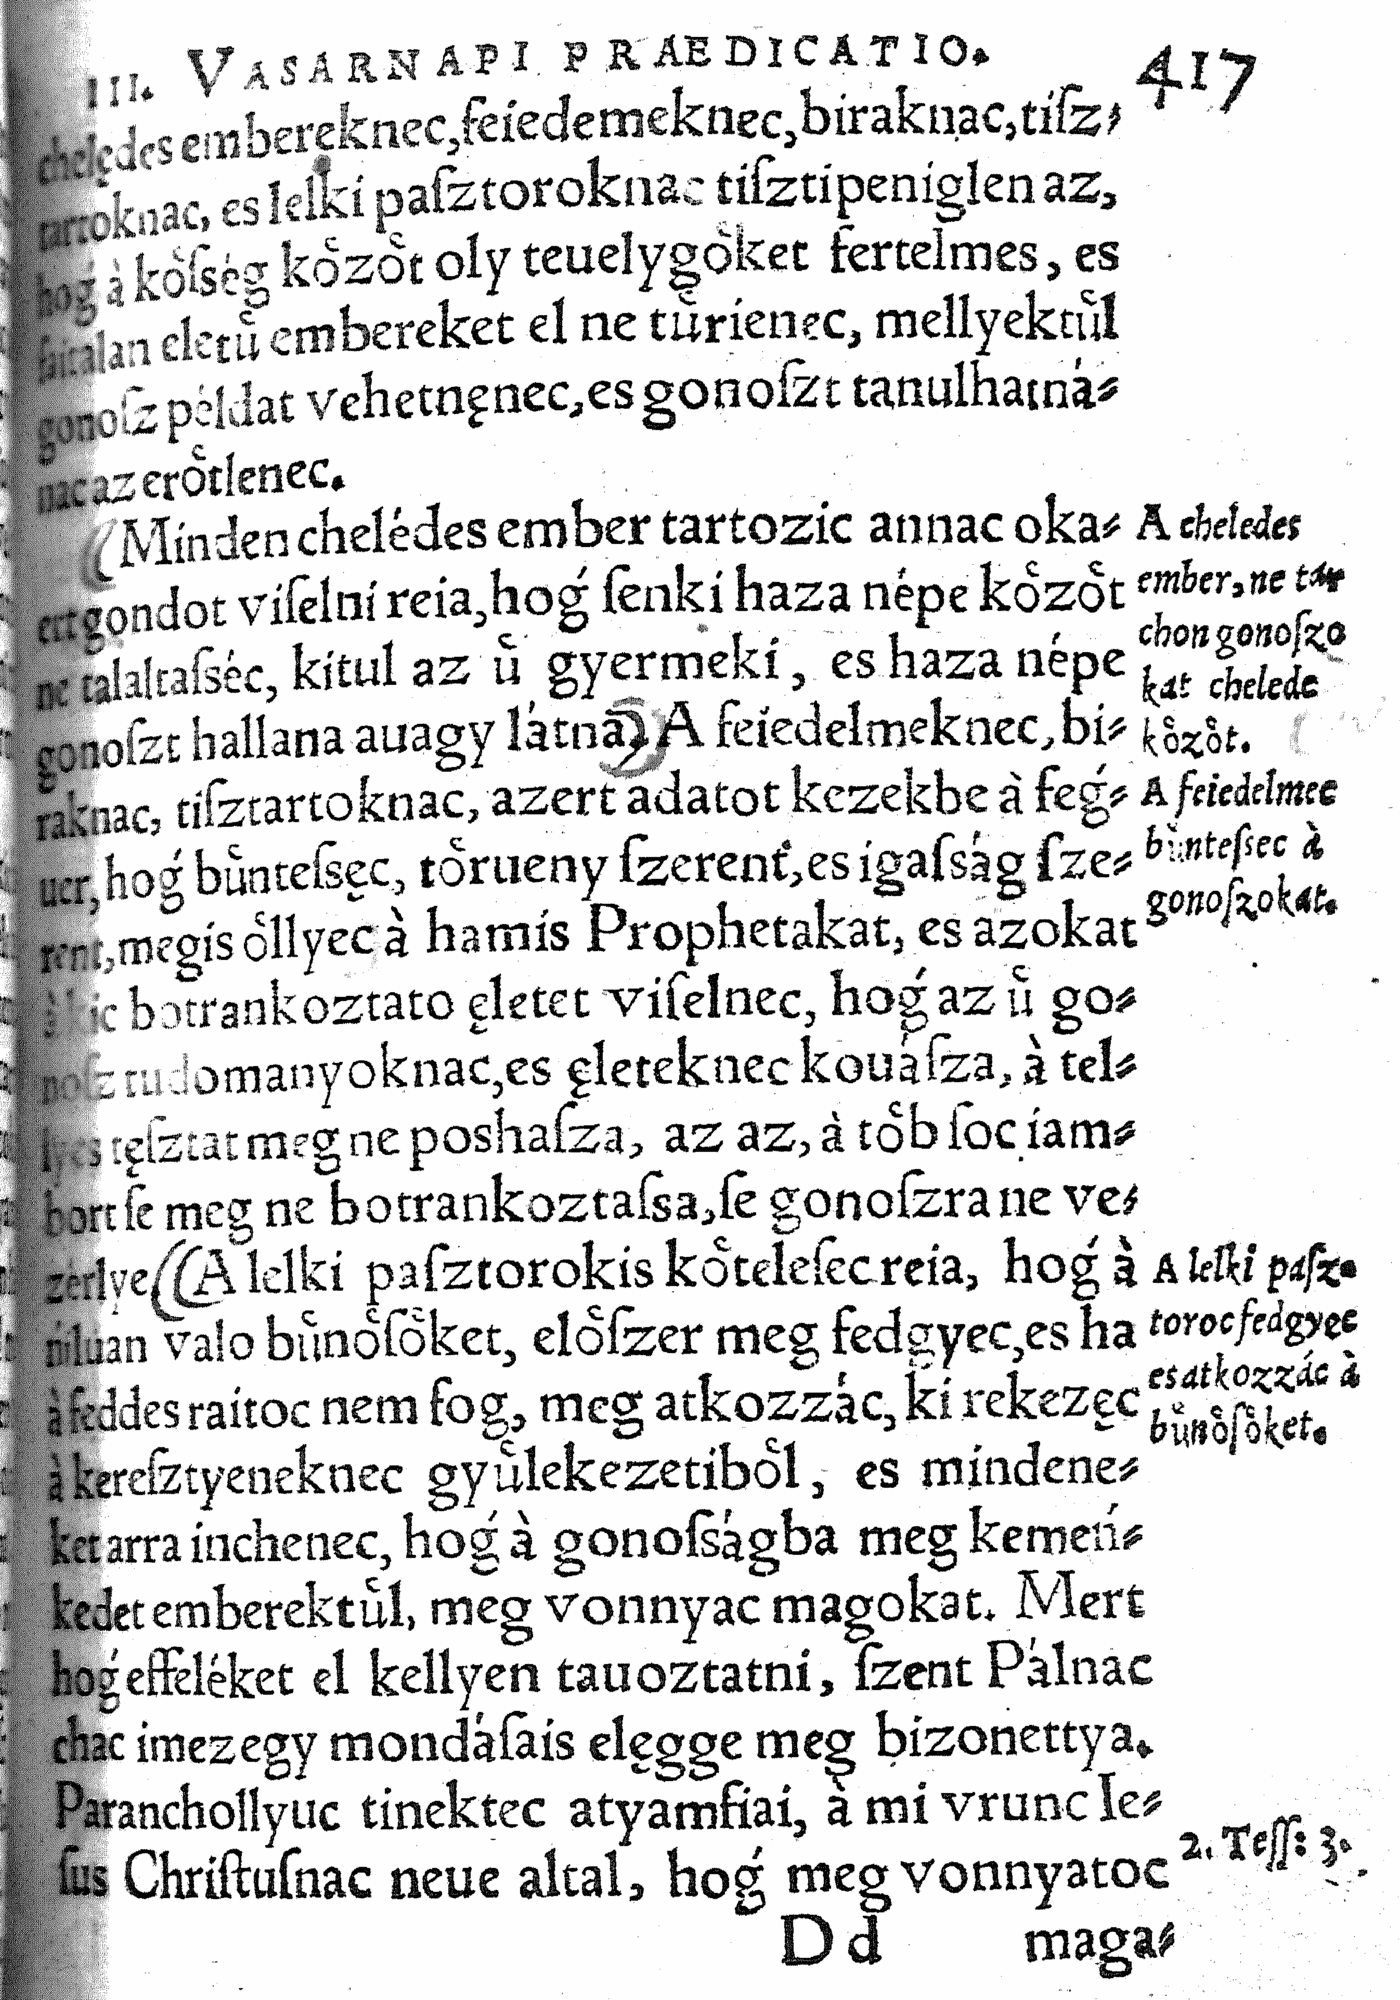 III. VASARNAPI PRAEDICATIO. 417
chelędes embereknec, feiedemeknec, biraknac, tiſz⸗
tartoknac, es lelki paſztoroknac tiſzti peniglen az,
hoǵ à koͤſség koͤzoͤt oly teuelygoͤket fertelmes, es
faitalan eletuͤ embereket el ne tuͤrienec, mellyektuͤl
gonoſz példat vehetnęnec, es gonoſzt tanulhatná⸗
nac az eroͤtlenec.
(Minden chelédes ember tartozic annac oka⸗
ert gondot viſelni reia, hoǵ ſenki haza népe koͤzoͤt
ne talaltaſséc, kitul az uͤ gyermeki, es haza népe
gonoſzt hallana auagy látna.) A feiedelmeknec, bi⸗
raknac, tiſztartoknac, azert adatot kezekbe à feǵ⸗
uer, hoǵ buͤnteſsęc, toͤrueny ſzerent, es igaſság ſze⸗
rent, megis oͤllyec à hamis Prophetakat, es azokat
à kic botrankoztato ęletet viſelnec, hoǵ az uͤ go⸗
noſz tudomanyoknac, es ęleteknec kouáſza, à tel⸗
lyes tęſztat meg ne poshaſza, az az, à toͤb ſoc iam⸗
bort ſe meg ne botrankoztaſsa, ſe gonoſzra ne ve⸗
zérlye ((A lelki paſztorokis koͤteleſec reia, hoǵ à
niluan valo buͤnoͤſoͤket, eloͤſzer meg fedgyec, es ha
à feddes raitoc nem fog, meg atkozzác, ki rekezęc
à kereſztyeneknec gyuͤlekezetiboͤl, es mindene⸗
ket arra inchenec, hoǵ à gonoſságba meg kemeń⸗
kedet emberektuͤl, meg vonnyac magokat. Mert
hoǵ effeléket el kellyen tauoztatni, ſzent Pálnac
chac imez egy mondáſais elęgge meg bizonettya.
Paranchollyuc tinektec atyamfiai, à mi vrunc Ie⸗
ſus Chriſtuſnac neue altal, hoǵ meg vonnyatoc
Dd maga⸗
A cheledes
ember, ne tar
chon gonoſzo
kat chelede
koͤzoͤt.
A feiedelmec
buͤnteſsec à
gonoſzokat.
A lelki paſz⸗
toroc fedgyęc
es atkozzác à
buͤnoͤſoͤket.
2. Teſſ: 3.